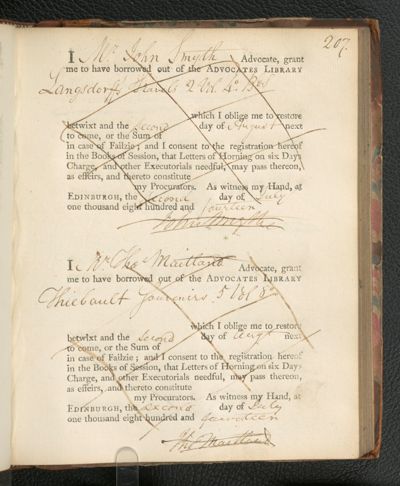 207.
I Mr John Smyth Advocate, grant
me to have borrowed out of the ADVOCATES LIBRARY
Langsdorffs Travels 2 Vol. 4o. Bds
which I oblige me to restore
betwixt and the second day of August next
to come, or the Sum of
in case of Failzie; and I consent to the registration hereof
in the Books of Session, that Letters of Horning on six Days
Charge, and other Executorials needful, may pass thereon,
as effeirs, and thereto constitute
my Procurators. As witness my Hand, at
EDINBURGH, the second day of July
one thousand eight hundred and fourteen
John Smythe
I Mr Tho Maitland Advocate, grant
me to have borrowed out of the ADVOCATES LIBRARY
Thiebault Souvenirs. 5 Vol 8o
which I oblige me to restore
betwixt and the second day of Augt next
to come, or the Sum of
in case of Failzie; and I consent to the registration hereof
in the Books of Session, that Letters of Horning on six Days
Charge, and other Executorials needful, may pass thereon,
as effeirs, and thereto constitute
my Procurators. As witness my Hand, at
EDINBURGH, the second day of July
one thousand eight hundred and fourteen
Tho Maitland